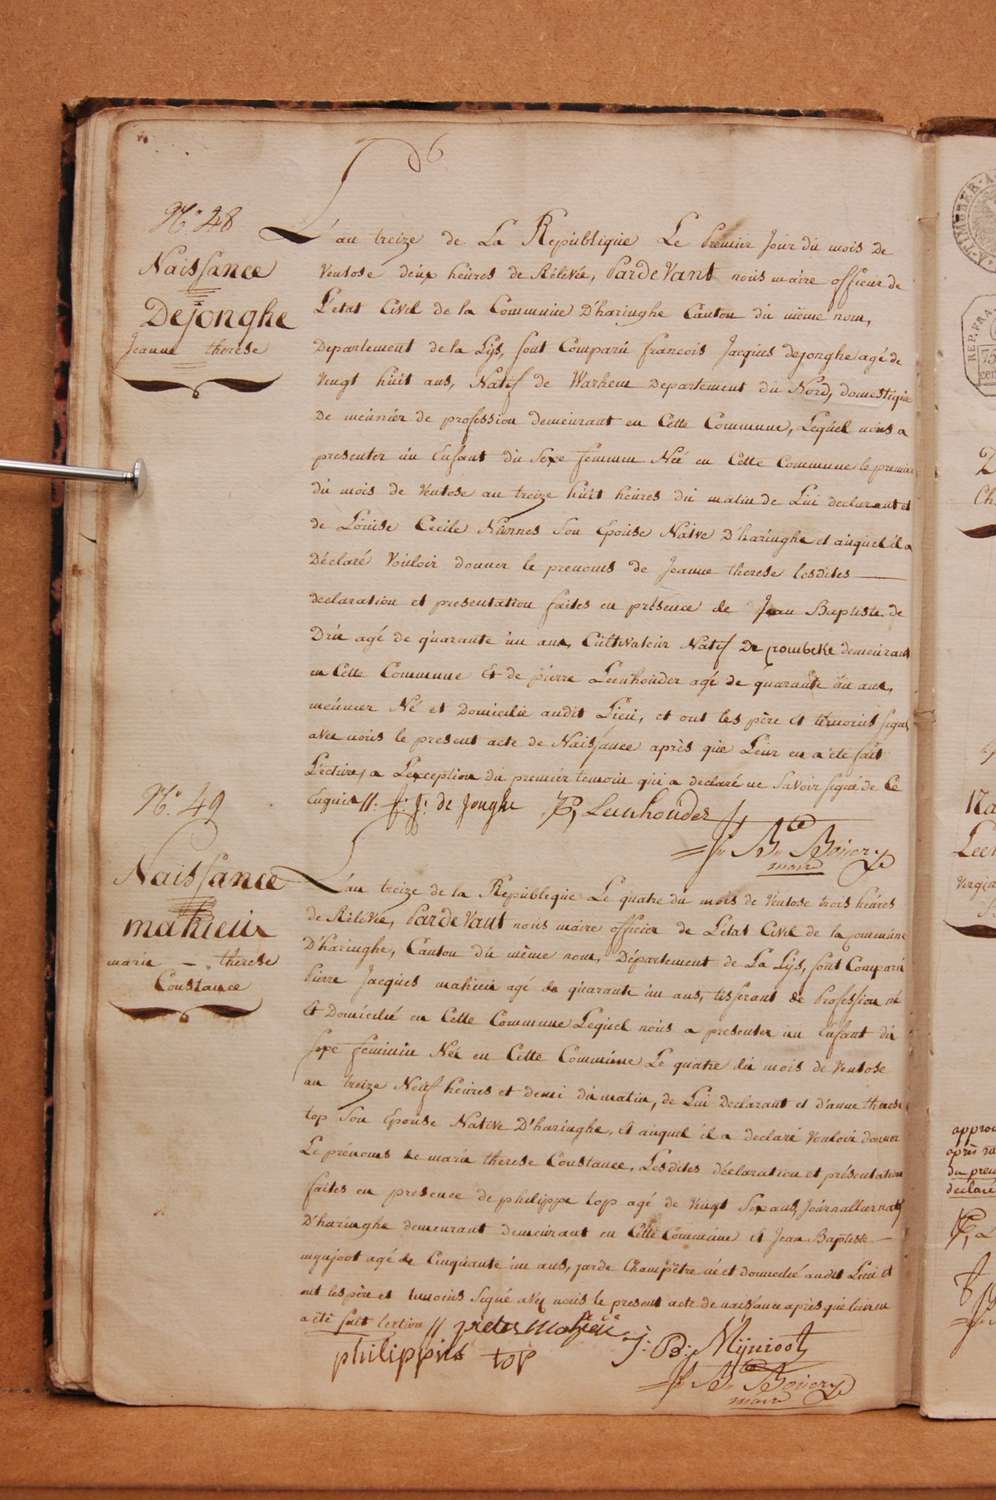 N.º 48
Naissance
Dejonghe
Jeanne therese
L'an treize de La Republique Le Premier Jour du mois de
Ventose deux heures de Rélevée, Pardevant nous maire officier de
L'etat Civil de la Commune D'haringhe Canton du même nom,
Departement de la Lijs, sont Comparu francois Jacques dejonghe agé de
Vingt huit ans, Natif de Warhem Departement du Nord, domestique
De meunier de profession demeurant en Cette Commune, Lequel nous a
presenter un Enfant du Sexe feminin Née en Cette Commune le premier
du mois de Ventose an treize huit heures du matin de Lui declarant et
de Louise Cecile Nannes Son Epouse Native D'haringhe et auquel il a
Déclaré Vouloir donner le prenoms de Jeanne therese lesdites
declaration et presentation faites en présence de Jean Baptiste de
Drie agé de quarante un ans, Cultivateur Natif De Crombeke demeurant
en Cette Commune Et de pierre Leenhouder agé de quarante un ans,
meunier Né et Domicilie audit Lieu, et ont les père et temoins signé
avec nous le present acte de Naissance après que Leur en a été fait
Lecture, a L'exception du premier temoin qui a declaré ne Savoir signé de Ce
Enquis //. f. j. de Jonghe P, Leenhouder
J. B. De Boiery
maire
N.º 49
Naissance
mahieu
marie - therese
Constance
L'an treize de la Republique Le quatre du mois de Ventose trois heures
de Rélevée, Pardevant nous maire officier de L'etat Civil de la Commune
D'haringhe, Canton du même nom, Département de La Lijs, sont Comparu
Pierre Jacques mahieu agé de quarante un ans, tisserant de Profession né
Et Domicilié en Cette Commune Lequel nous a presenter un Enfant du
Sexe feminin Née en Cette Commune Le quatre du mois de Ventose
an treize Neuf heures et demi du matin, de Lui Declarant et d'anne therese
top Son Epouse Native D'haringhe, et auquel il a declaré Vouloir donner
Le prénoms de marie therese Constance, Lesdites déclaration et présentation
faites en presence de philippe top agé de Vingt Six ans, Journallier natif
D'haringhe demeurant demeurant en Cette Commune et Jean Baptiste
mynjoot agé de Cinquante un ans, garde Champêtre né et domicilié audit Lieu et
ont les père et temoins Signé avec nous le present acte de naissance après que leur en
a été fait lecture // pieter Mahieu J: B: Mijnjoot
philippus top
J. B. De Boiery
maire